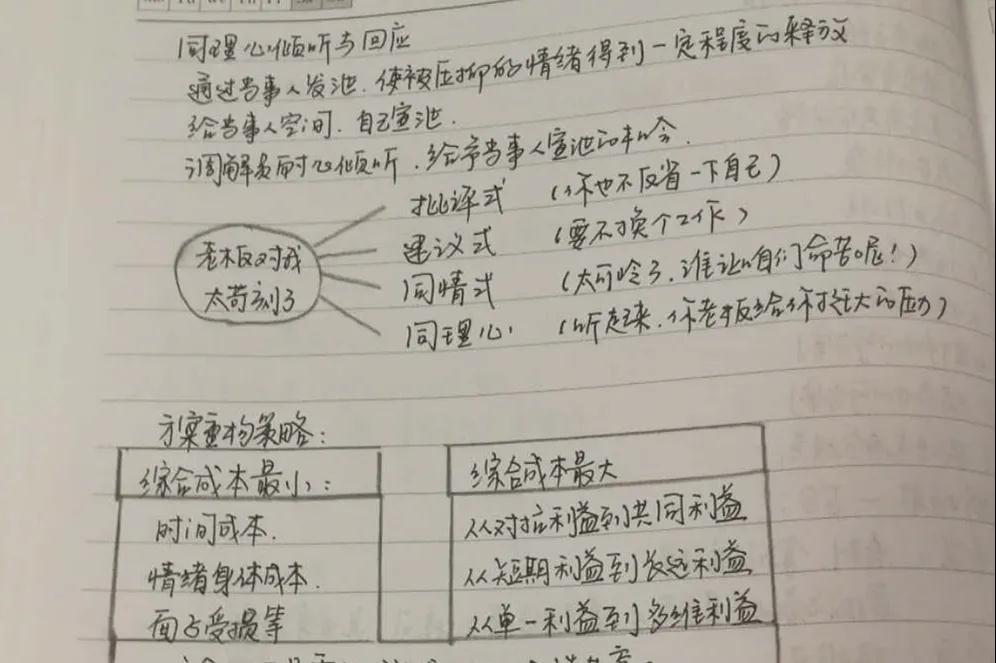 同理心倾听与回应
通过当事人发池.使被压抑的情绪得到一定程度的释放
给当事人空间.自己宣池.
调解员耐心倾听.给予当事人宣池的机会.
老板对我
太苛刻了
批评式 (你也不反省一下自己)
建议式 (要不换个工作)
同情式 (太可怜了.谁让咱们命苦呢!)
同理心 (听起来.你老板给你挺大的压力)
方案重构策略:
综合成本最小: 综合成本最大
时间成本. 从对抗利益到共同利益
情绪身体成本. 从短期利益到长远利益
面子受损等 从单一利益到多维利益